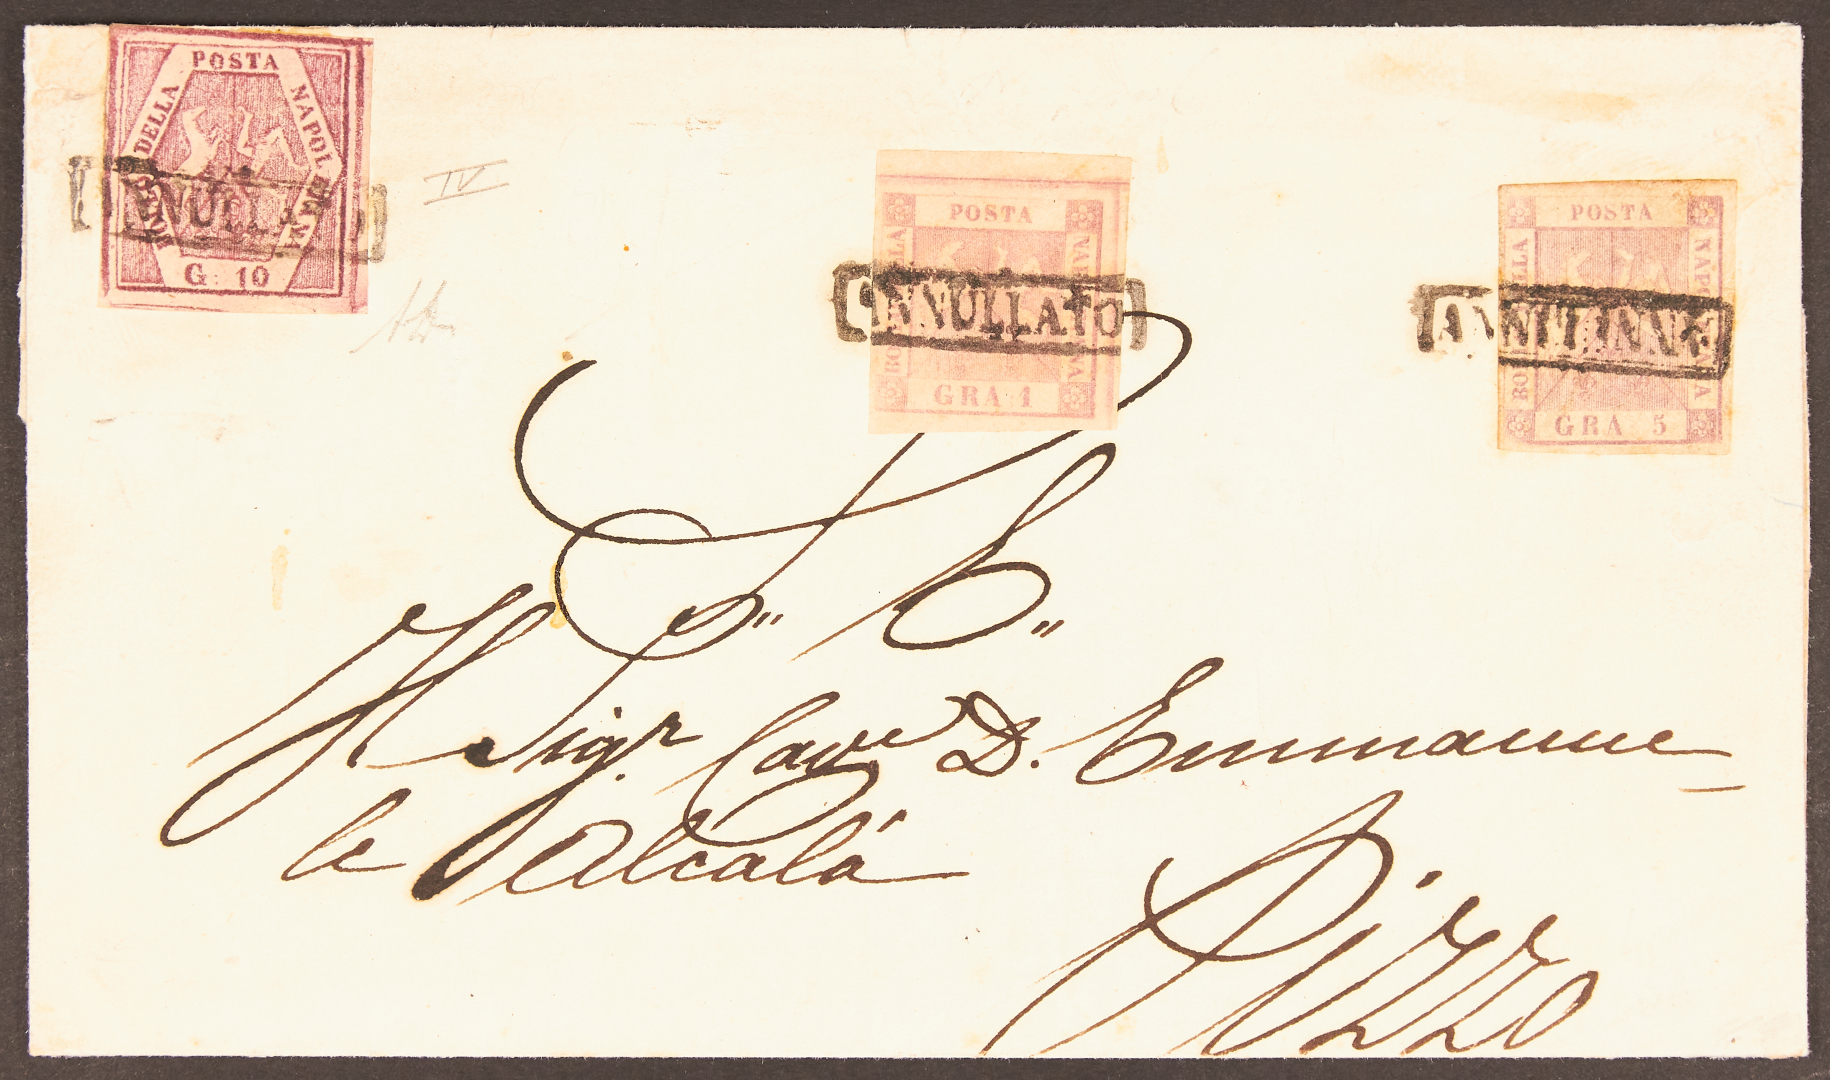 POSTA
BOLLO DELLA
NAPOLETANA
G. 10
ANNULLATO
IV
POSTA
BOLLO DELLA
NAPOLETANA
GRA 1
ANNULLATO
POSTA
BOLLO DELLA
NAPOLETANA
GRA 5
S. E.
Al Sigr. Cave D. Emmanue
le Alcalá
Pizzo